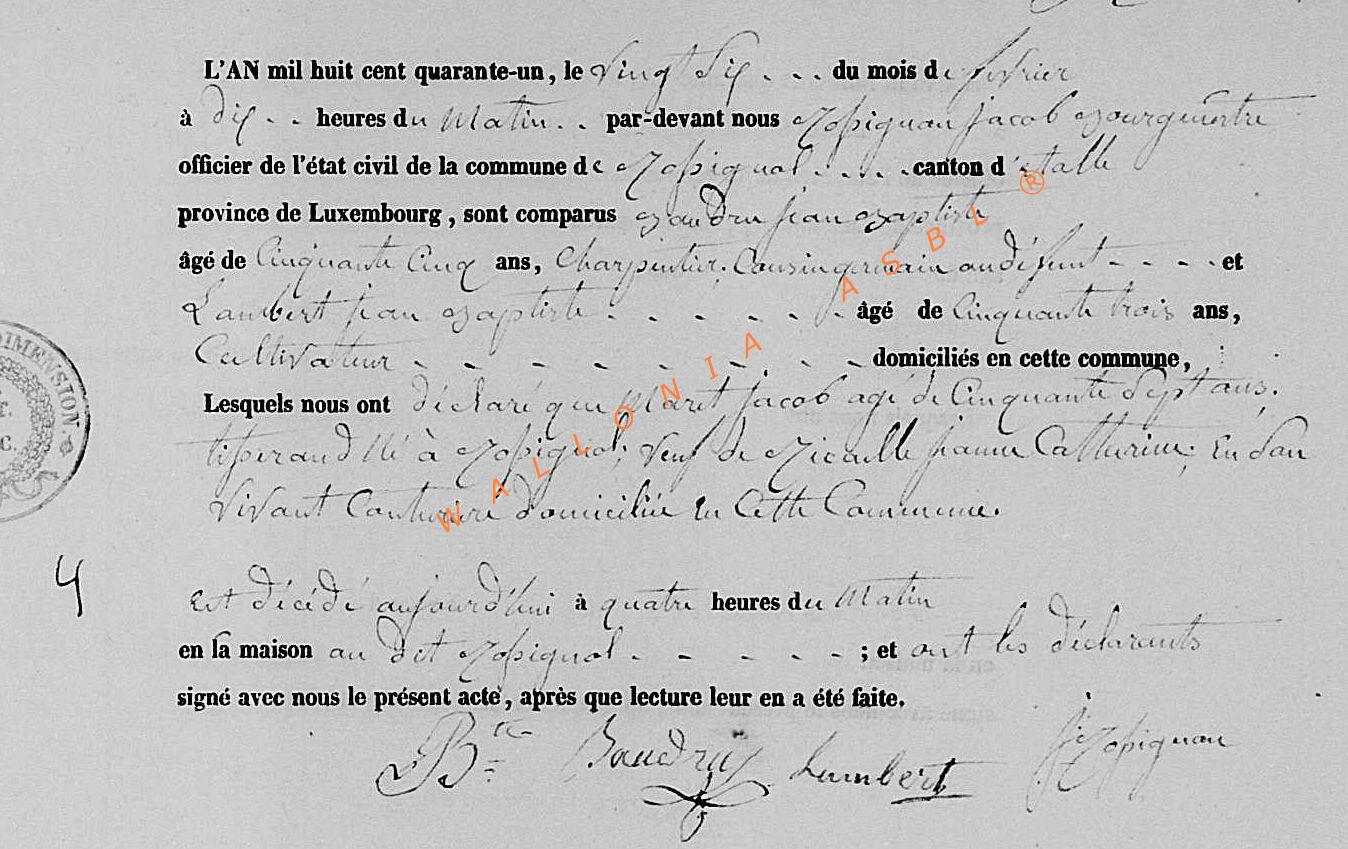 L'AN mil huit cent quarante-un, le Vingt Six du mois de fevrier
à Dix heures du Matin par-devant nous Rossignon Jacob Bourguestre
officier de l'état civil de la commune de Rossignol canton d'etalle
province de Luxembourg, sont comparus Baudru jean Baptiste
âgé de Cinquante Cinq ans, Charpentier. Cousin germain au défunt et
Lambert jean Baptiste âgé de Cinquante trois ans,
Cultivateur domiciliés en cette commune,
Lesquels nous ont déclaré que Maret Jacob agé de Cinquante Sept ans.
tisserand Né à Rossignol, Veuf de jeanne Catherine; En Son
Vivant domiciliée En Cette Commune.
4
Est décédé aujourd'hui à quatre heures du Matin
en la maison au dit Rossignol ; et ont les déclarants
signé avec nous le présent acte, après que lecture leur en a été faite.
Bte Baudru Lambert J Rossignon
DIMENSION
C.
WALLONIA ASBL ®